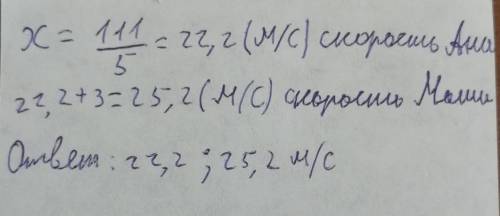 X = 111/5 = 22,2 (м/с) скорость Ани
22,2+3=25,2 (м/с) скорость Маши
Ответ: 22,2 ; 25,2 м/с